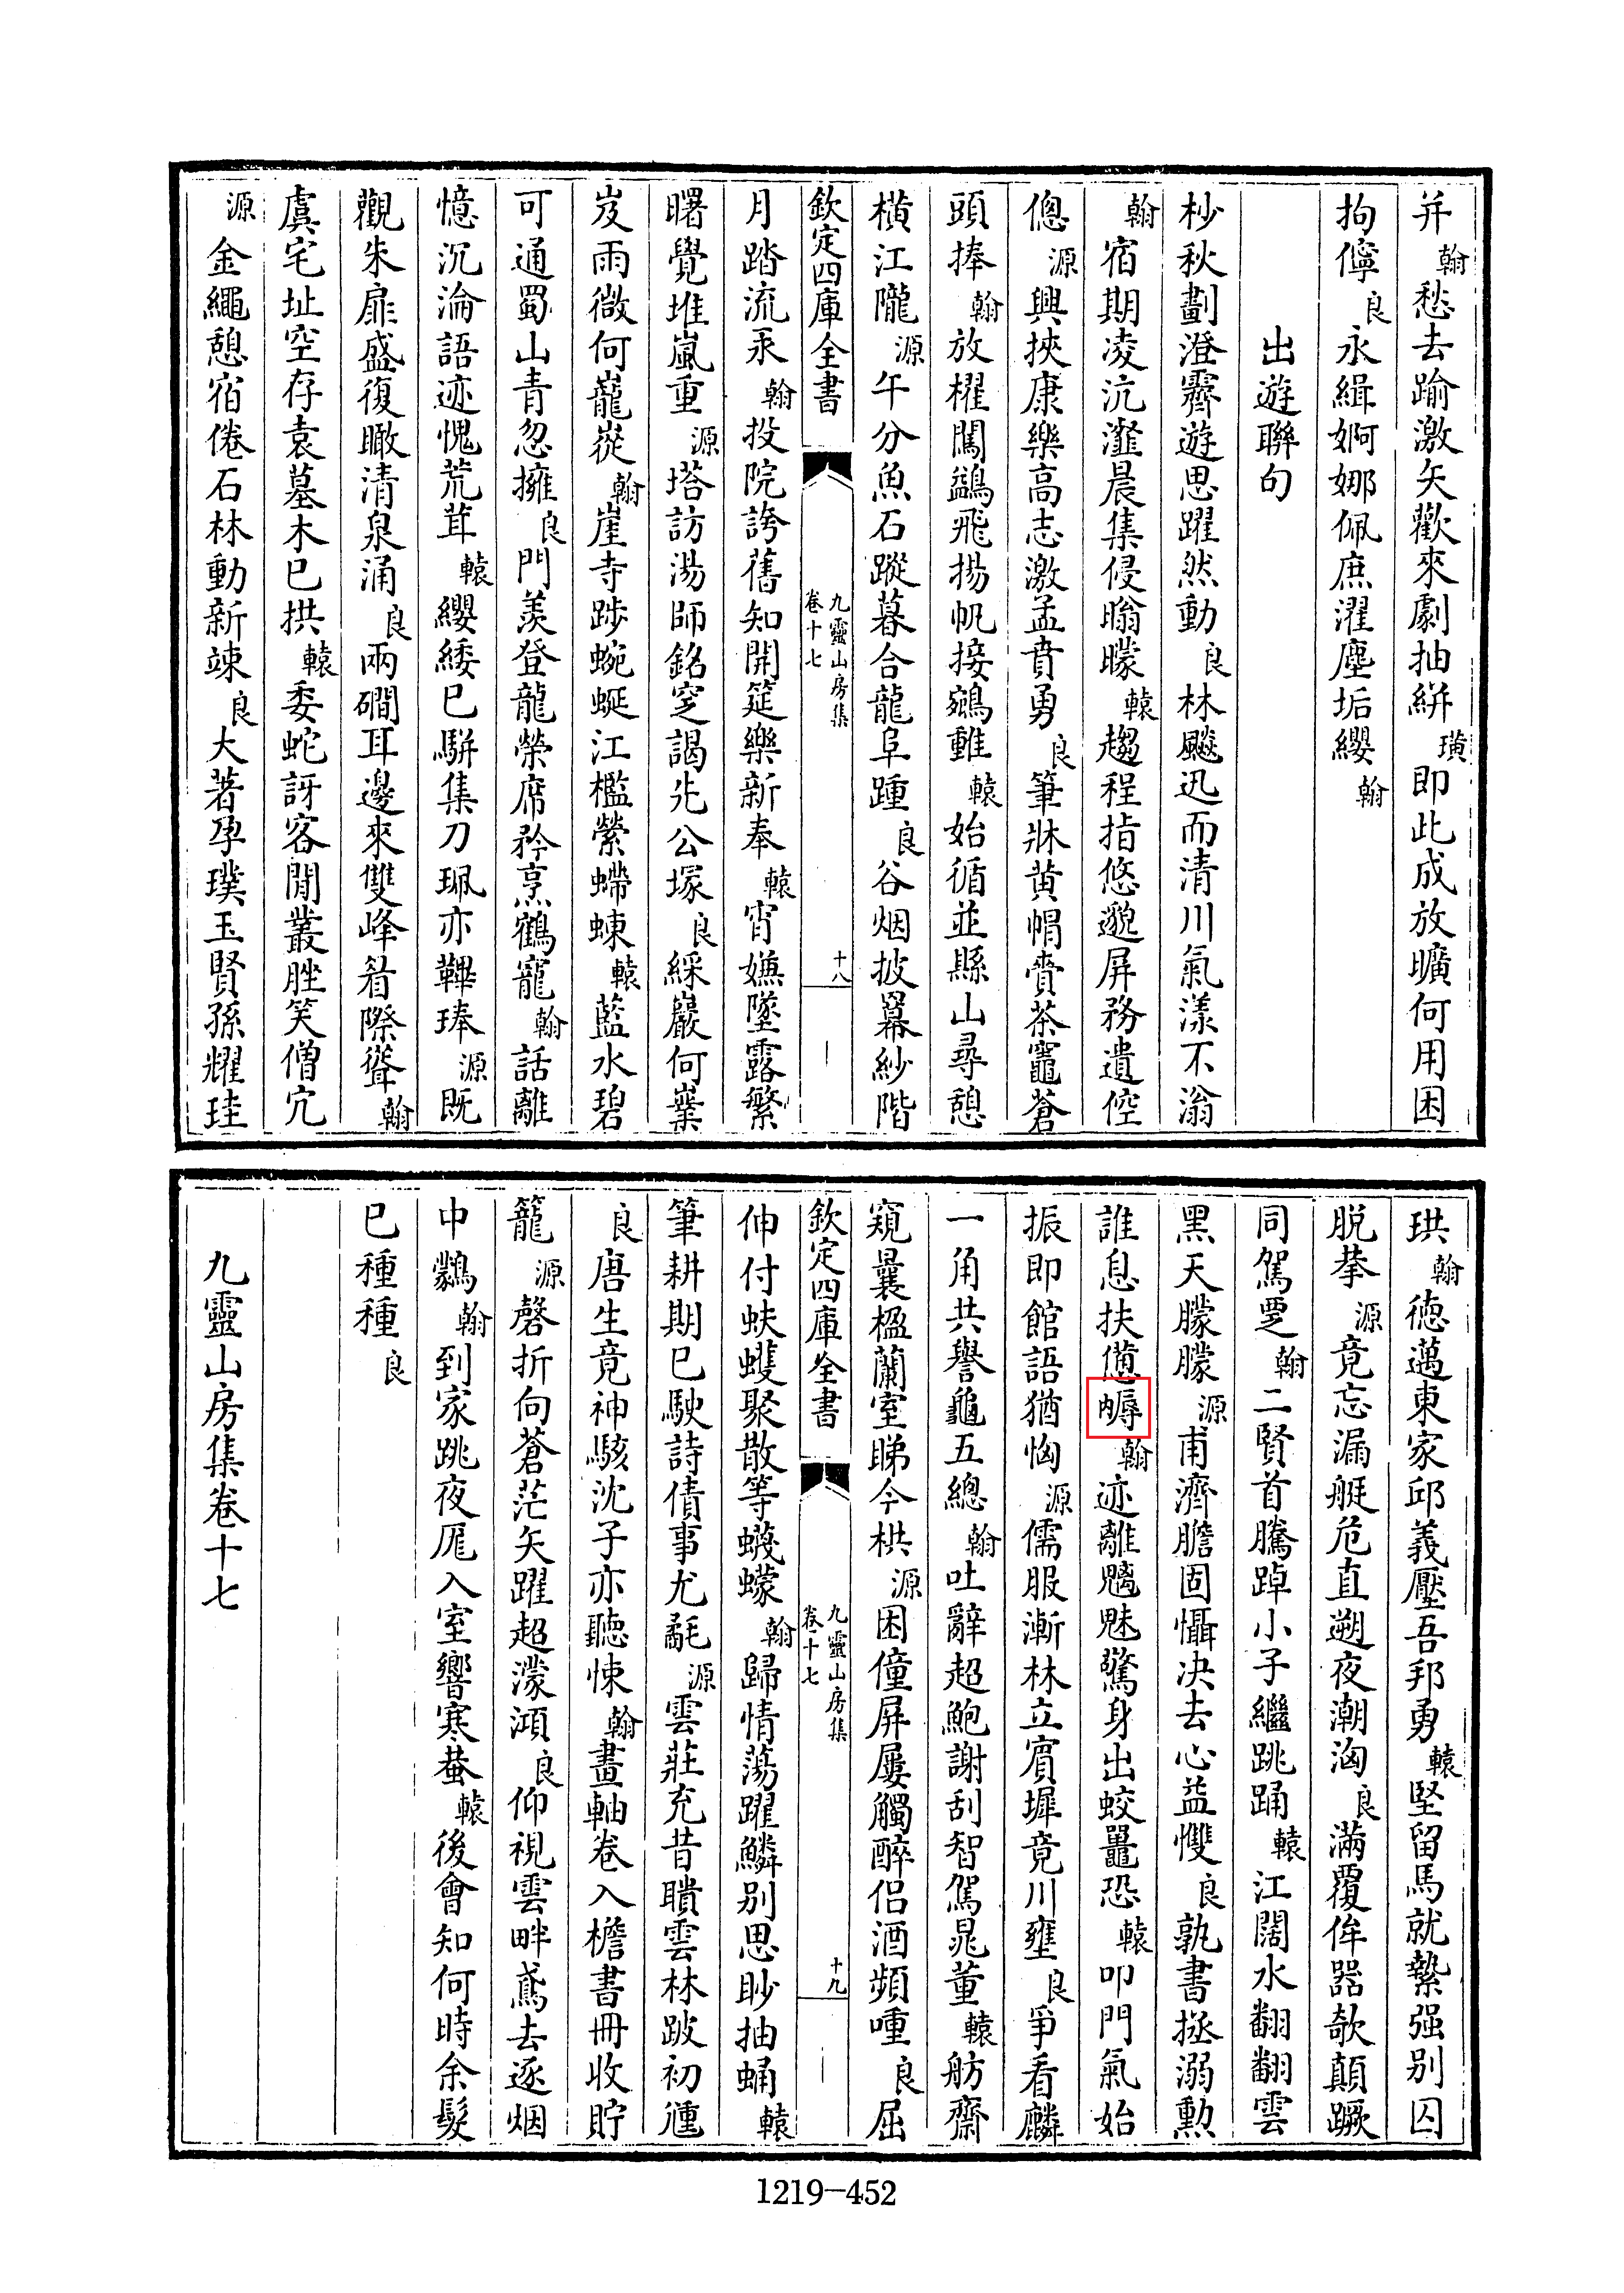 并翰愁去踰激矢歡來劇抽絣璜即此成放曠何用困
拘儜良永緝婀娜佩庶濯塵垢纓翰
出遊聯句
杪秋劃澄霽遊思躍然動良林飈迅而清川氣漾不滃
翰宿期凌沆瀣晨集侵暡曚轅趨程指悠邈屏務遺倥
傯源興挾康樂高志激孟賁勇良筆牀黄帽賷茶竈蒼
頭捧翰放櫂闖鷁飛揚帆接鵷䡴轅始循並縣山尋憩
横江隴源午分魚石蹤暮合龍阜踵良谷烟披羃紗階
欽定四庫全書
九靈山房集
卷十七
十八
月踏流汞翰投院誇舊知開筵樂新奉轅宵嫌墜露繁
曙覺堆嵐重源塔訪湯師銘穿謁先公塚良綵巖何嶪
岌雨微何巃嵷翰崖寺踄蜿蜒江檻縈螮蝀轅藍水碧
可通蜀山青忽擁良門羡登龍榮席矜烹鶴寵翰話離
憶沉淪語迹愧荒茸轅纓緌巳駢集刀珮亦鞸琫源既
觀朱扉盛復瞰清泉涌良兩磵耳邊來雙峰眉際聳翰
虞宅址空存袁墓木已拱轅委蛇訝客閒叢脞笑僧冗
源金繩憩宿倦石林動新竦良大著孕璞玉賢孫耀珪
珙翰德邁東家邱義壓吾邦勇轅堅留馬就縶强别囚
脱拲源竟忘漏艇危直遡夜潮洶良滿覆侔器欹顛蹶
同駕覂翰二賢首騰踔小子繼跳踊轅江闊水翻翻雲
黑天朦朦源甫濟膽固懾决去心益㦼良孰書拯溺勲
誰息扶憊翰迹離魑魅驚身出蛟鼉恐轅叩門氣始
振即館語猶恟源儒服漸林立賔墀竟川壅良爭看麟
一角共譽龜五總翰吐辭超鮑謝刮智駕晁董轅舫齋
窺曩楹蘭室睇今栱源困僮屏屢觸醉侣酒頻喠良屈
欽定四庫全書
九靈山房集
卷十七
十九
伸付蚨蠖聚散等蠛蠓翰歸情蕩躍鱗别思眇抽蛹轅
筆耕期已駛詩債事尤氄源雲莊充昔聵雲林跛初尰
良唐生竟神駭沈子亦聽悚翰畫軸卷入檐書冊收貯
籠源磬折向蒼茫矢躍超濛澒良仰視雲畔鳶去逐烟
中鸏翰到家跳夜厖入室響寒蛬轅後會知何時余髮
已種種良
九靈山房集卷十七
1219-452